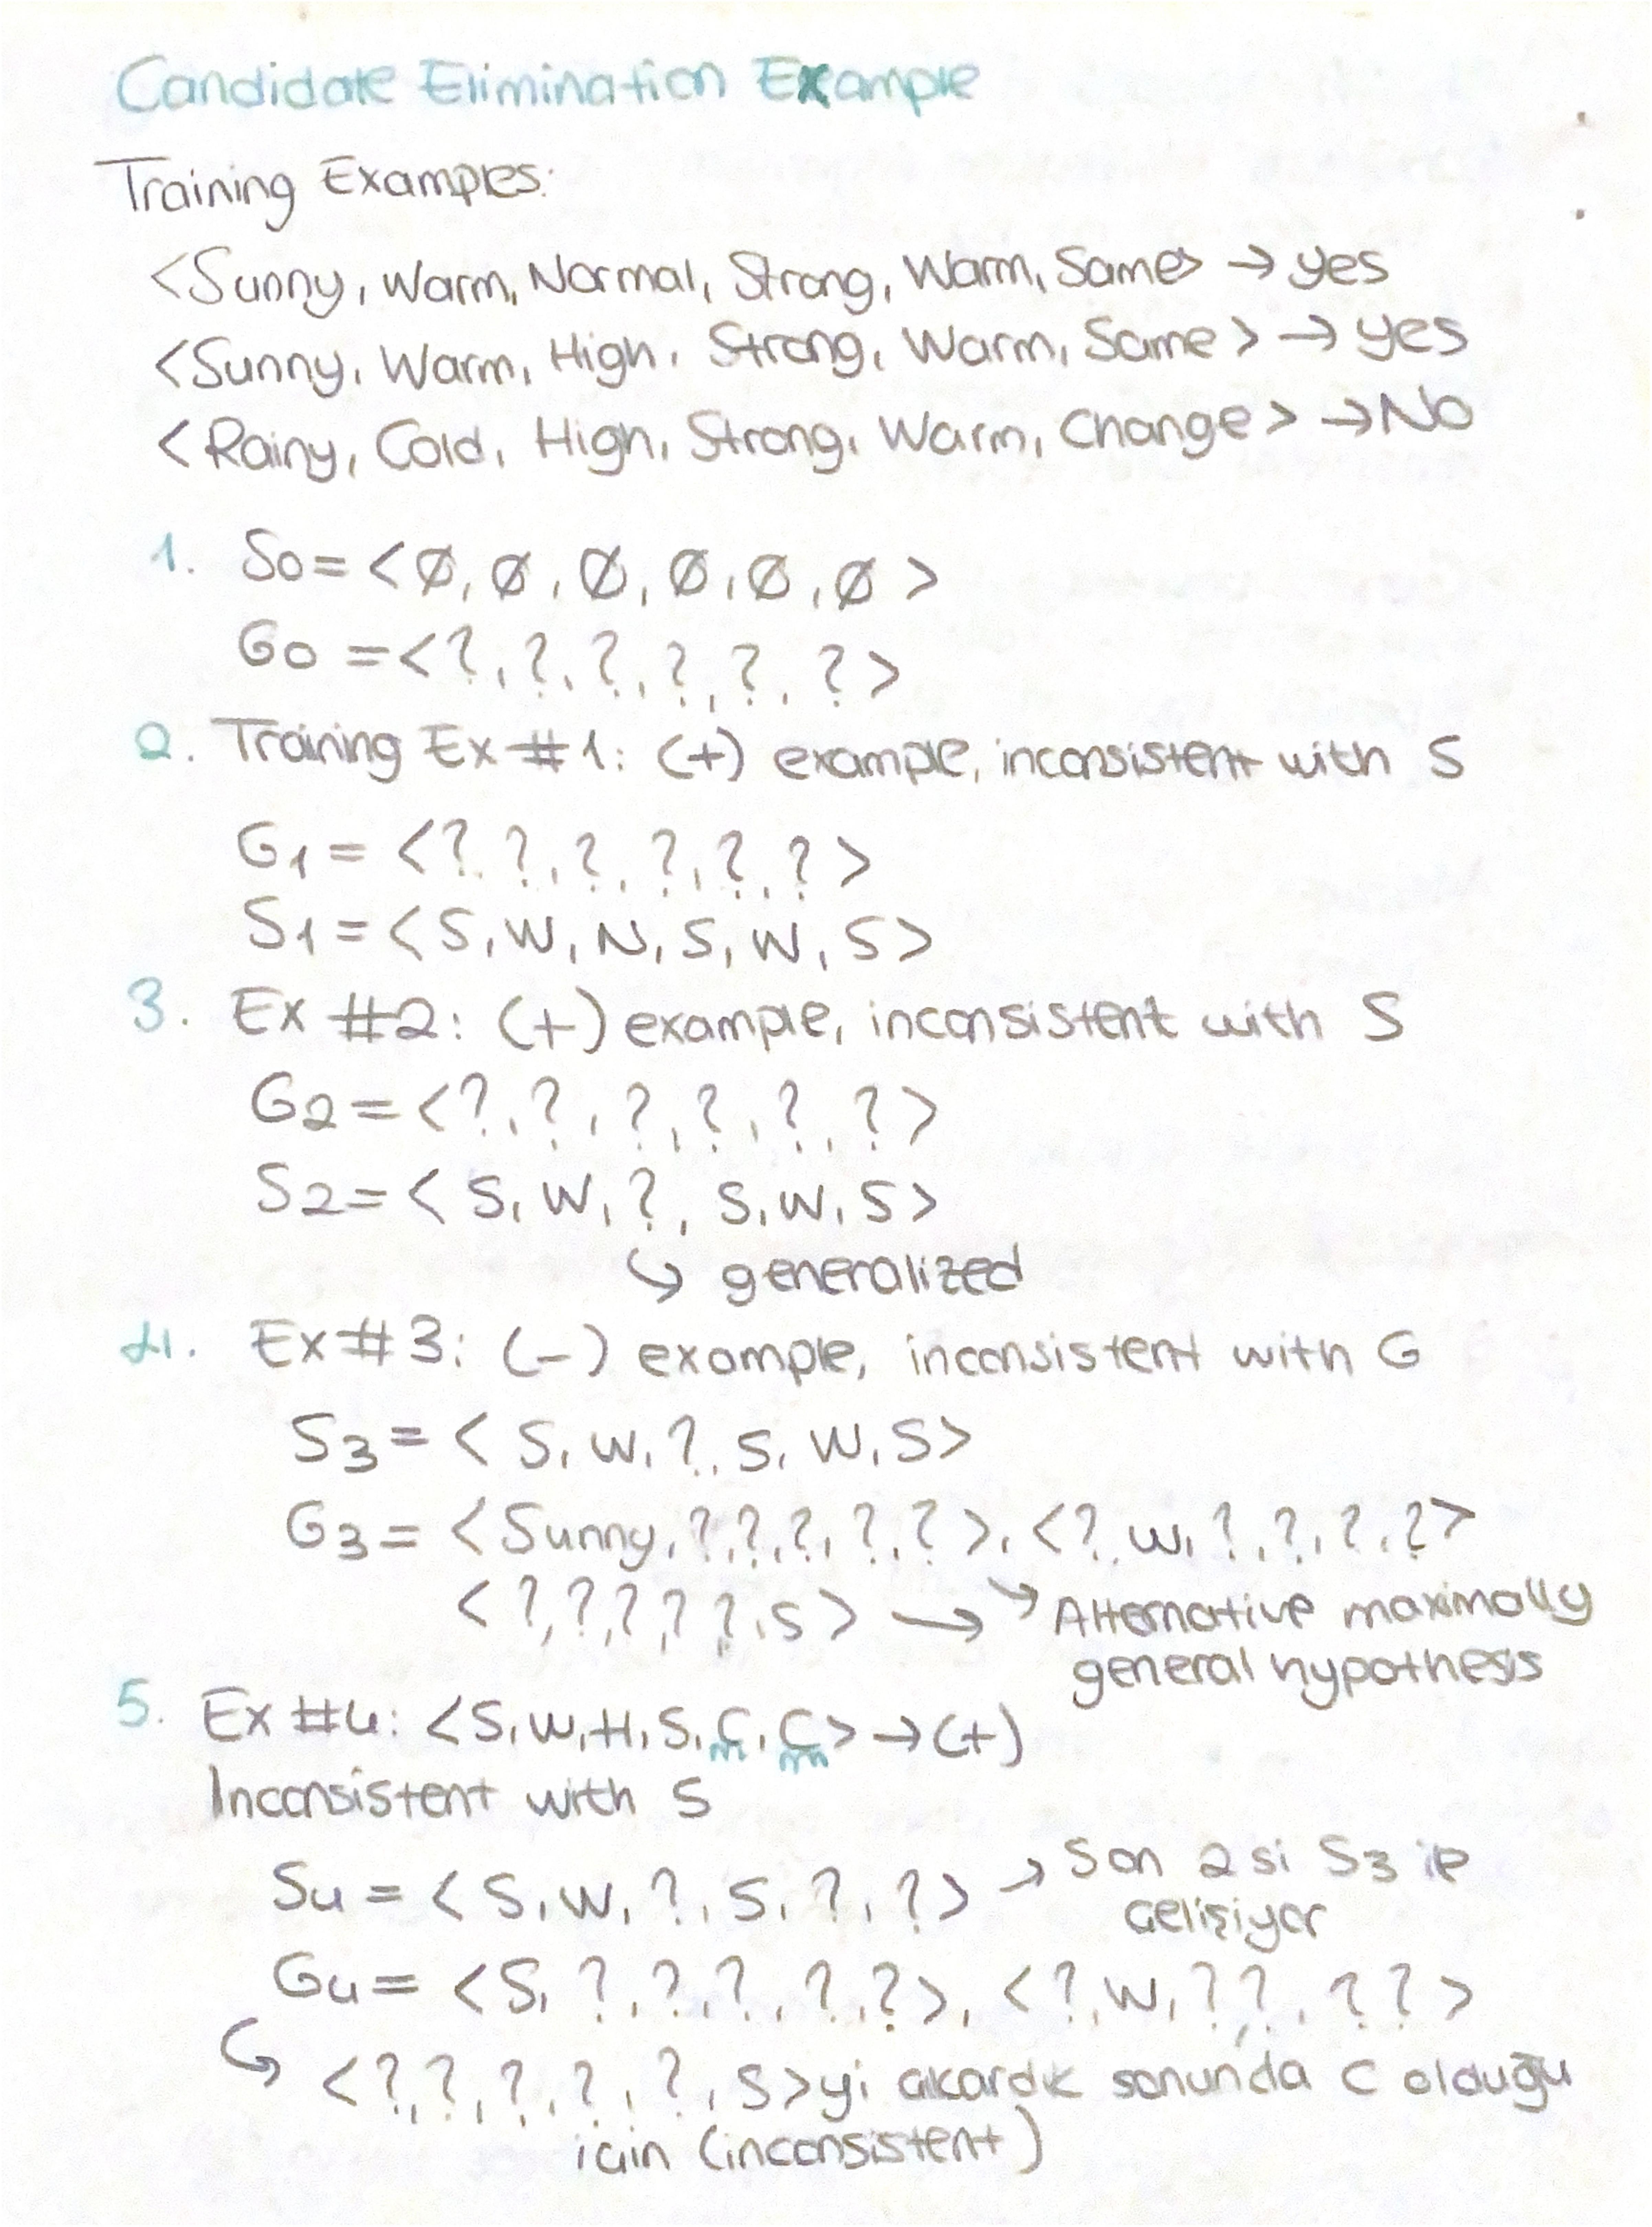 Candidate Elimination Example
Training Examples:
<Sunny, Warm, Normal, Strong, Warm, Same> → yes
<Sunny, Warm, High, Strong, Warm, Same> → yes
<Rainy, Cold, High, Strong, Warm, Change> → No
1. S0 = <Ø, Ø, Ø, Ø, Ø, Ø>
G0 = <?, ?, ?, ?, ?, ?>
2. Training Ex #1: (+) example, inconsistent with S
G1 = <?, ?, ?, ?, ?, ?>
S1 = <S, W, N, S, W, S>
3. Ex #2: (+) example, inconsistent with S
G2 = <?, ?, ?, ?, ?, ?>
S2 = <S, W, ?, S, W, S>
↳ generalized
4. Ex #3: (-) example, inconsistent with G
S3 = <S, W, ?, S, W, S>
G3 = <Sunny, ?, ?, ?, ?, ?>, <?, W, ?, ?, ?, ?>
<?, ?, ?, ?, ?, S> → → Alternative maximally
general hypothesis
5. Ex #4: <S, W, H, S, C, C> → (+)
Inconsistent with S
S4 = <S, W, ?, S, ?, ?> → Son 2 si S3 ile
çelişiyor
G4 = <S, ?, ?, ?, ?, ?>, <?, W, ? ?, ? ?>
↳ <?, ?, ?, ?, ?, S> yi çıkardık sonunda C olduğu
için (inconsistent)